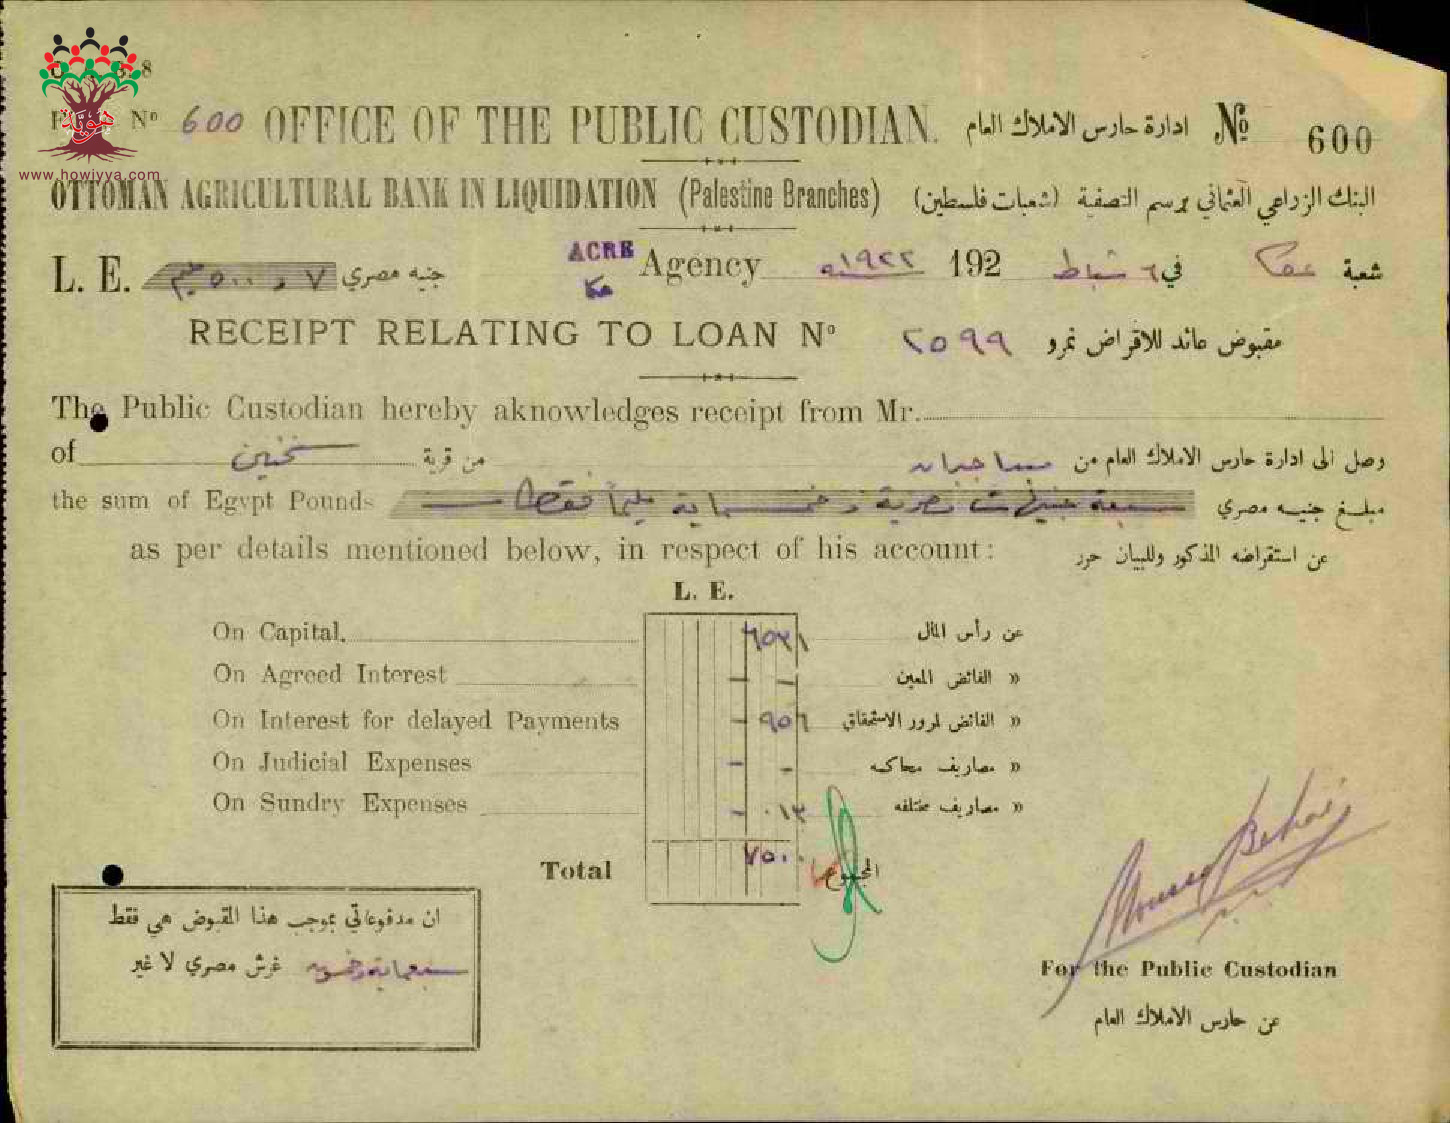 هويّة
www.howiyya.com
Nº 600 OFFICE OF THE PUBLIC CUSTODIAN. ادارة حارس الاملاك العام Nº 600
OTTOMAN AGRICULTURAL BANK IN LIQUIDATION (Palestine Branches) البنك الزراعي العثماني برسم التصفية (شعبات فلسطين)
L. E. ٧ و ٥٠٠ جنيه مصري ACRE عكا Agency ١٩٢٢ 192 في ٦ شباط شعبة عكا
RECEIPT RELATING TO LOAN Nº ٢٥٩٩ مقبوض عائد للاقراض نمرو
The Public Custodian hereby aknowledges receipt from Mr.
of سخنين من قرية وصل الى ادارة حارس الاملاك العام من
the sum of Egypt Pounds سبعة جنيهات مصرية و خمسماية مليماً فقط مبلغ جنيه مصري
as per details mentioned below, in respect of his account: عن استقراضه المذكور وللبيان حرر
L. E.
On Capital. ٦٥٣١ عن رأس المال
On Agreed Interest — — » الفائض المعين
On Interest for delayed Payments - ٩٥٦ » الفائض لمرور الاستحقاق
On Judicial Expenses - - » مصاريف محاكمه
On Sundry Expenses - ٠١٣ » مصاريف مختلفه
Total ٧٥٠٠ المجموع
ان مدفوعاتي بموجب هذا المقبوض هي فقط
سبعماية وخمسون غرش مصري لا غير
For the Public Custodian
عن حارس الاملاك العام